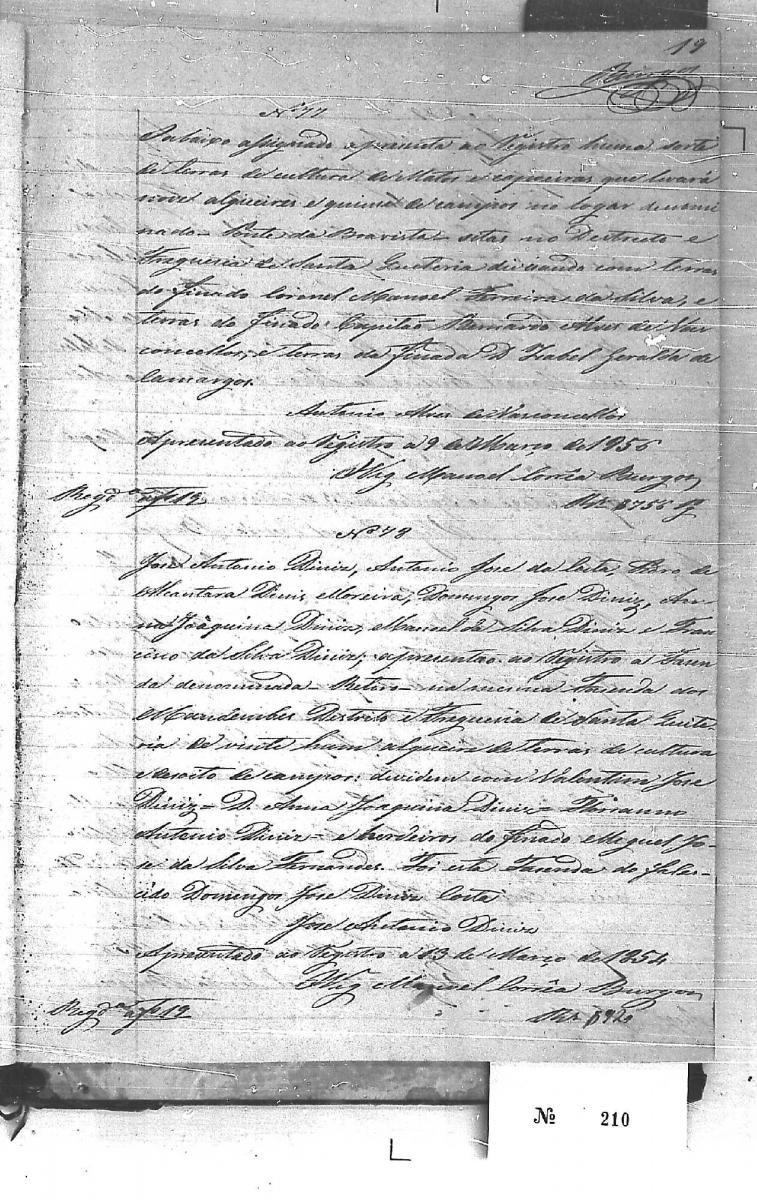 19
Burgos
Nº 77
O abaixo assignado apresenta ao Registro huma sorte
de terras de cultura de Matos e capoeiras que levará
nove alqueires e quinze de campos no logar denomi
nado - Ponte da Boavista - sitas no Destricto e
Freguesia de Santa Quiteria divisando com terras
do finado Coronel Manoel Ferreira da Silva, e
terras do finado Capitão Bernardo Alves de Vas
concellos, e terras da finada D. Izabel Geralda de
Camargos.
Antonio Alves de Vasconcellos
Apresentado ao Registro a 9 de Março de 1856
O Vigº Manoel Corrêa Burgos
Regdº a f 19
Nº 78
José Antonio Diniz, Antonio José da Costa, Pedro de
Alcantara Diniz Moreira, Domingos José Diniz, An-
na Joaquina Diniz, Manoel da Silva Diniz e Fran
cisco da Silva Diniz, apresentão ao Registro a Fazen
da denominada - Retiro - na mesma Fazenda dos
Macudembes Districto e Freguesia de Santa Quite-
ria de vinte hum alqueire de terras de cultura
e desoito de campos: dividem com Valentim José
Diniz - D. Anna Joaquina Diniz - Florianno
Antonio Diniz - e herdeiros do finado Miguel Jo-
sé da Silva Fernandes. Foi esta Fazenda do fale-
cido Domingos José Diniz Costa
José Antonio Diniz
Apresentado ao Registro a 13 de Março de 1854
O Vigº Manoel Corrêa Burgos
Regdº a f 19
Nº 210